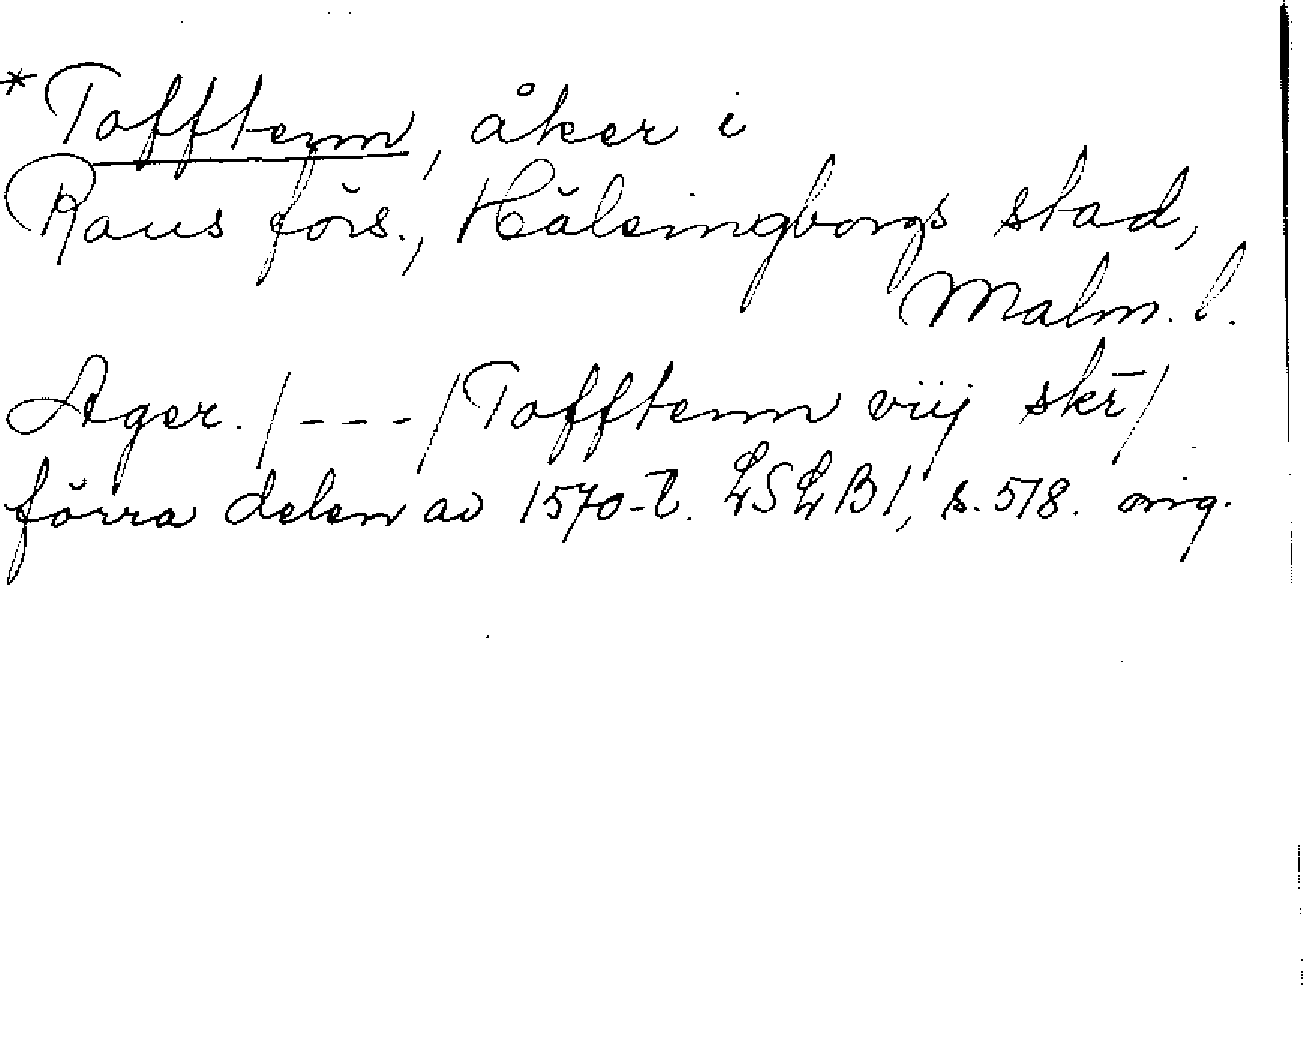 *Tofftenn, åker i
Raus förs., Hälsingborgs stad,
Malm. l.
Ager. /---/ Tofftenn viij skr̄/
förra delen av 1570-t. LSLB 1, s. 518. orig.